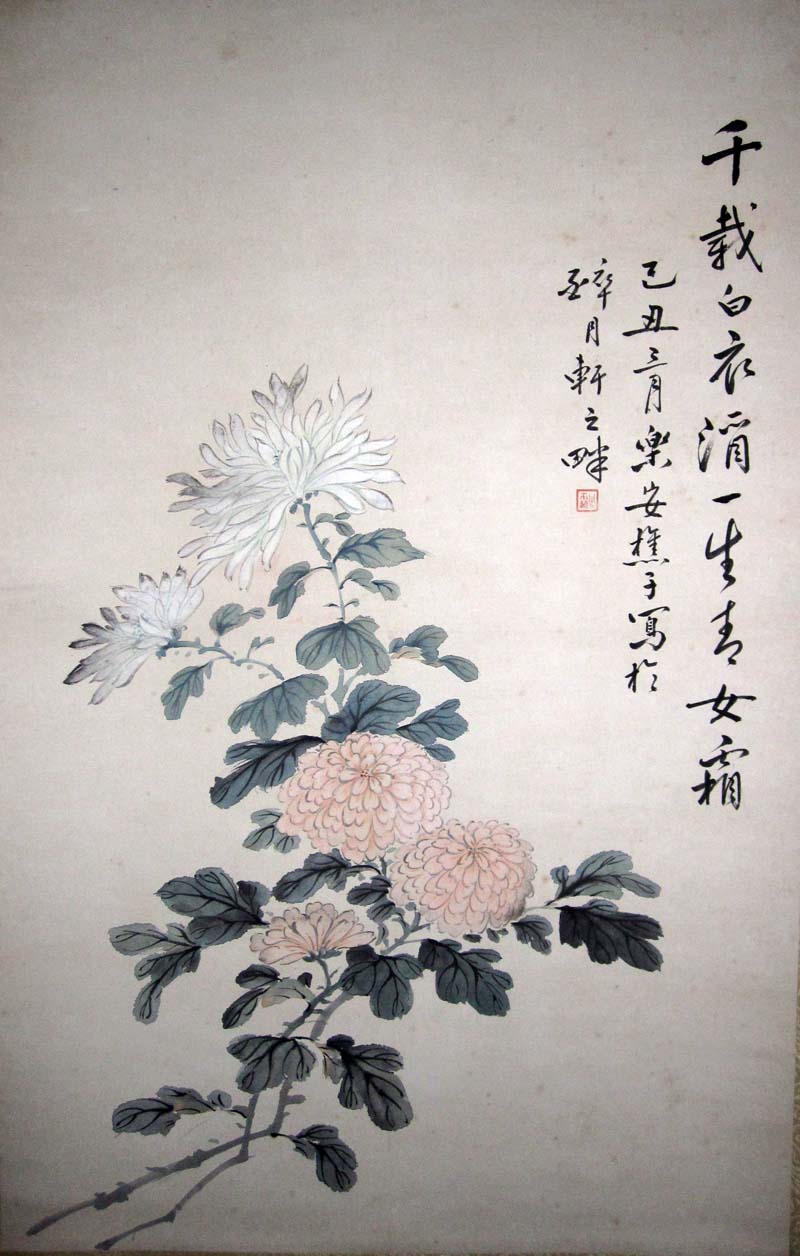 千載白衣酒一生青女霜
己丑三月樂安樵子寫於
醉月軒之畔